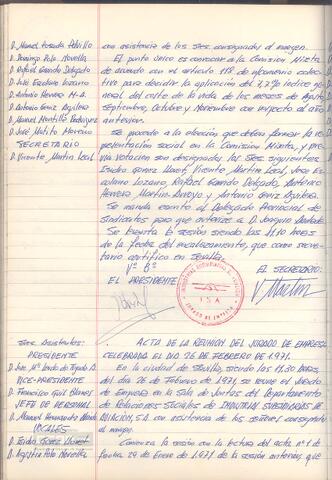 D. Manuel Posada Patrillo
D. Domingo Rojo Novella
D. Rafael Garrido Delgado
D. José Escolano Lozano
D. Antonio Herrera M-A.
D. Antonio Geniz Aguilera
D. Manuel Montilla Rodríguez
D. José Matito Moreno
SECRETARIO
D. Vicente Martin Leal.
con asistencia de los Sres. consignados al margen.
El punto único es convocar a la Comisión Mixta
de acuerdo con el artículo 118 de n/convenio colec-
tivo para decidir la aplicación del 7,2% índice ge-
neral del coste de la vida de los meses de Agosto
Septiembre, Octubre y Noviembre con respecto al año
anterior.
Se procede a la elección que deben formar la re-
presentación social en la Comisión Mixta, y pre-
via votación son designados los Sres. siguientes
Isidro Gomez Vicente Martin Leal, Jose Es-
colano Lozano, Rafael Garrido Delgado, Antonio
Herrera Martin-Arroyo y Antonio Geniz Aguilera.
Se manda escrito al Delegado Provincial de
Sindicatos para que autorice a D. Joaquin
Se levanta la sesión siendo las 11,10 horas
de la fecha del encabezamiento, que como secre-
tario certifico en Sevilla
Vº Bº
EL PRESIDENTE
EL SECRETARIO.
V. Martin
I S A
JURADO DE EMPRESA
ACTA DE LA REUNION DEL JURADO DE EMPRESA
CELEBRADA EL DIA 26 DE FEBRERO DE 1.971.
Sres. Asistentes:
PRESIDENTE
VICE-PRESIDENTE
D. Francisco Gil Blanes
JEFE DE PERSONAL
D. Manuel Hernandez
VOCALES
D. Isidro Gomez
D. Agustin
En la ciudad de Sevilla, siendo las 11,30 horas,
del dia 26 de Febrero de 1971, se reune el Jurado
de Empresa en la Sala de Juntas del Departamento
de Relaciones Sociales de INDUSTRIAS SUBSIDIARIAS DE
AVIACION, S.A. con asistencia de los señores consignados
al margen.
Comienza la sesión con la lectura del acta nº 1 de
fecha 29 de Enero de 1.971 de la sesión anterior, que